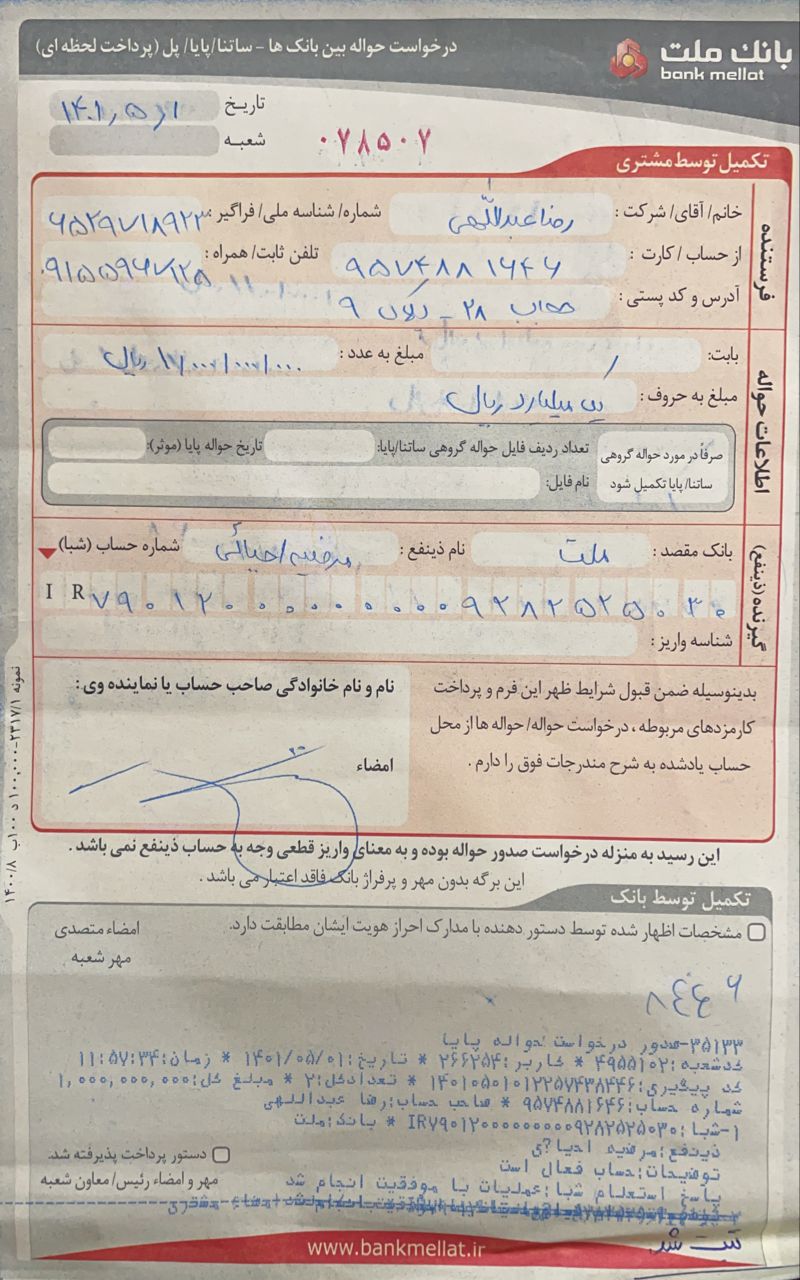 بانک ملت
bank mellat
درخواست حواله بین بانک ها - ساتنا/پایا/ پل (پرداخت لحظه ای)
تاریخ ۱۴۰۱٫۵٫۱
شعبه
۰۷۸۵۰۷
تکمیل توسط مشتری
فرستنده
خانم/ آقای/ شرکت : رضا عبداللهی شماره/ شناسه ملی/ فراگیر :
از حساب /کارت : ۹۵۷۴۸۸۱۶۴۶ تلفن ثابت/ همراه :
آدرس و کد پستی : ۲۸ - پلاک ۹
اطلاعات حواله
بابت: مبلغ به عدد : ریال
مبلغ به حروف : یک میلیارد ریال
صرفاً در مورد حواله گروهی ساتنا/ پایا تکمیل شود
تعداد ردیف فایل حواله گروهی ساتنا/پایا: تاریخ حواله پایا (موثر):
نام فایل:
گیرنده (ذینفع)
بانک مقصد : ملت نام ذینفع : مرضیه احیائی شماره حساب (شبا)
I R ۷۹۰۱۲۰۰۰۰۰۰۰۰۰۰۹۲۸۲۵۲۵۰۳۰
شناسه واریز :
بدینوسیله ضمن قبول شرایط ظهر این فرم و پرداخت
کارمزدهای مربوطه ، درخواست حواله/ حواله ها از محل
حساب یادشده به شرح مندرجات فوق را دارم .
نام و نام خانوادگی صاحب حساب یا نماینده وی :
امضاء
این رسید به منزله درخواست صدور حواله بوده و به معنای واریز قطعی وجه به حساب ذینفع نمی باشد .
این برگه بدون مهر و پرفراژ بانک فاقد اعتبار می باشد .
تکمیل توسط بانک
مشخصات اظهار شده توسط دستور دهنده با مدارک احراز هویت ایشان مطابقت دارد.
امضاء متصدی
مهر شعبه
۳۵۱۳۳-صدور درخواست حواله پایا
کدشعبه:۴۹۵۵۱۰۲ * کاربر:۲۶۶۲۵۴ * تاریخ:۱۴۰۱/۰۵/۰۱ * زمان:۱۱:۵۷:۳۴
کد پیگیری:۱۴۰۱۰۵۰۱۰۱۲۲۵۷۴۳۸۴۴۶ * تعدادکل:۲ * مبلغ کل:۱,۰۰۰,۰۰۰,۰۰۰
شماره حساب:۹۵۷۴۸۸۱۶۴۶ * صاحب حساب:رضا عبداللهی
۱-شبا:IR۷۹۰۱۲۰۰۰۰۰۰۰۰۰۰۹۲۸۲۵۲۵۰۳۰ * بانک:ملت
ذینفع:مرضیه احیا?ی
توضیحات:حساب فعال است
پاسخ استعلام شبا:عملیات با موفقیت انجام شد
دستور پرداخت پذیرفته شد.
مهر و امضاء رئیس/ معاون شعبه
ثبت شد
www.bankmellat.ir
نمونه ۲۳۱۷/۱-۱۰۰,۰۰۰ د ۱۰۰ب ۱۴۰۰/۸